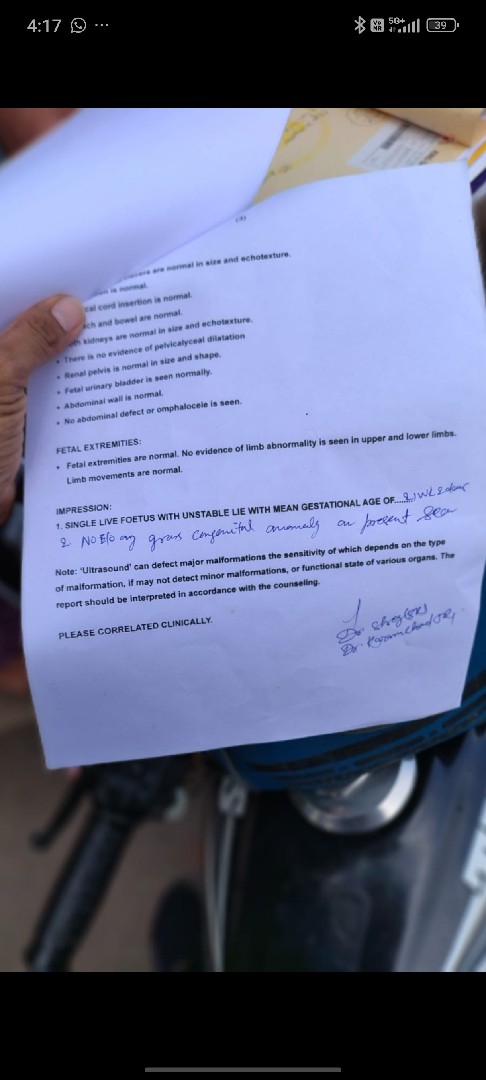 4:17
39
(3)
are normal in size and echotexture.
is normal.
cal cord insertion is normal.
ch and bowel are normal.
kidneys are normal in size and echotexture.
• There is no evidence of pelvicalyceal dilatation
• Renal pelvis is normal in size and shape.
• Fetal urinary bladder is seen normally.
• Abdominal wall is normal.
• No abdominal defect or omphalocele is seen.
FETAL EXTREMITIES:
• Fetal extremities are normal. No evidence of limb abnormality is seen in upper and lower limbs.
Limb movements are normal.
IMPRESSION:
1. SINGLE LIVE FOETUS WITH UNSTABLE LIE WITH MEAN GESTATIONAL AGE OF....
2. NO E/o any gross congenital anomaly on present scan
Note: 'Ultrasound' can defect major malformations the sensitivity of which depends on the type
of malformation, if may not detect minor malformations, or functional state of various organs. The
report should be interpreted in accordance with the counseling.
PLEASE CORRELATED CLINICALLY.
Dr.
Dr.